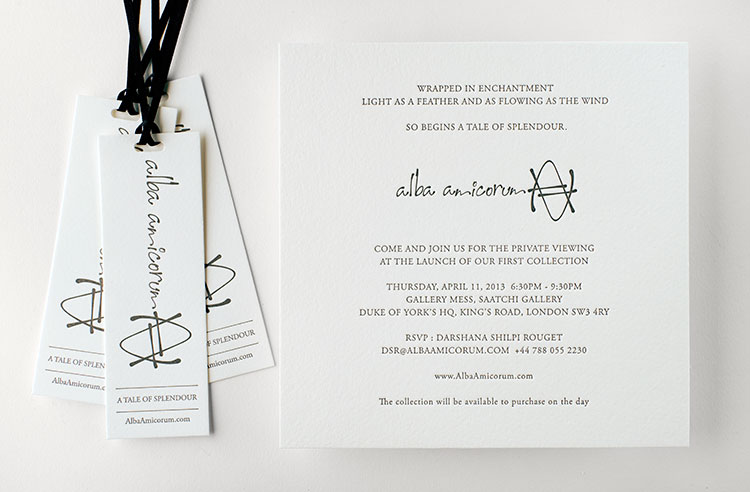 alba amicorum
A TALE OF SPLENDOUR
AlbaAmicorum.com
A TALE OF SPLEN
AlbaAmicoru
SPLENDOUR
um.com
WRAPPED IN ENCHANTMENT
LIGHT AS A FEATHER AND AS FLOWING AS THE WIND
SO BEGINS A TALE OF SPLENDOUR.
alba amicorum
COME AND JOIN US FOR THE PRIVATE VIEWING
AT THE LAUNCH OF OUR FIRST COLLECTION
THURSDAY, APRIL 11, 2013 6:30PM - 9:30PM
GALLERY MESS, SAATCHI GALLERY
DUKE OF YORK'S HQ, KING'S ROAD, LONDON SW3 4RY
RSVP : DARSHANA SHILPI ROUGET
DSR@ALBAAMICORUM.COM +44 788 055 2230
www.AlbaAmicorum.com
The collection will be available to purchase on the day